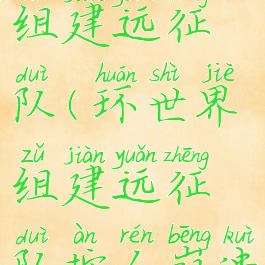 组建远征
duì huán shì jiè
队(环世界
zǔ jiàn yuǎn zhēng
组建远征
duì àn rén bēng kuì